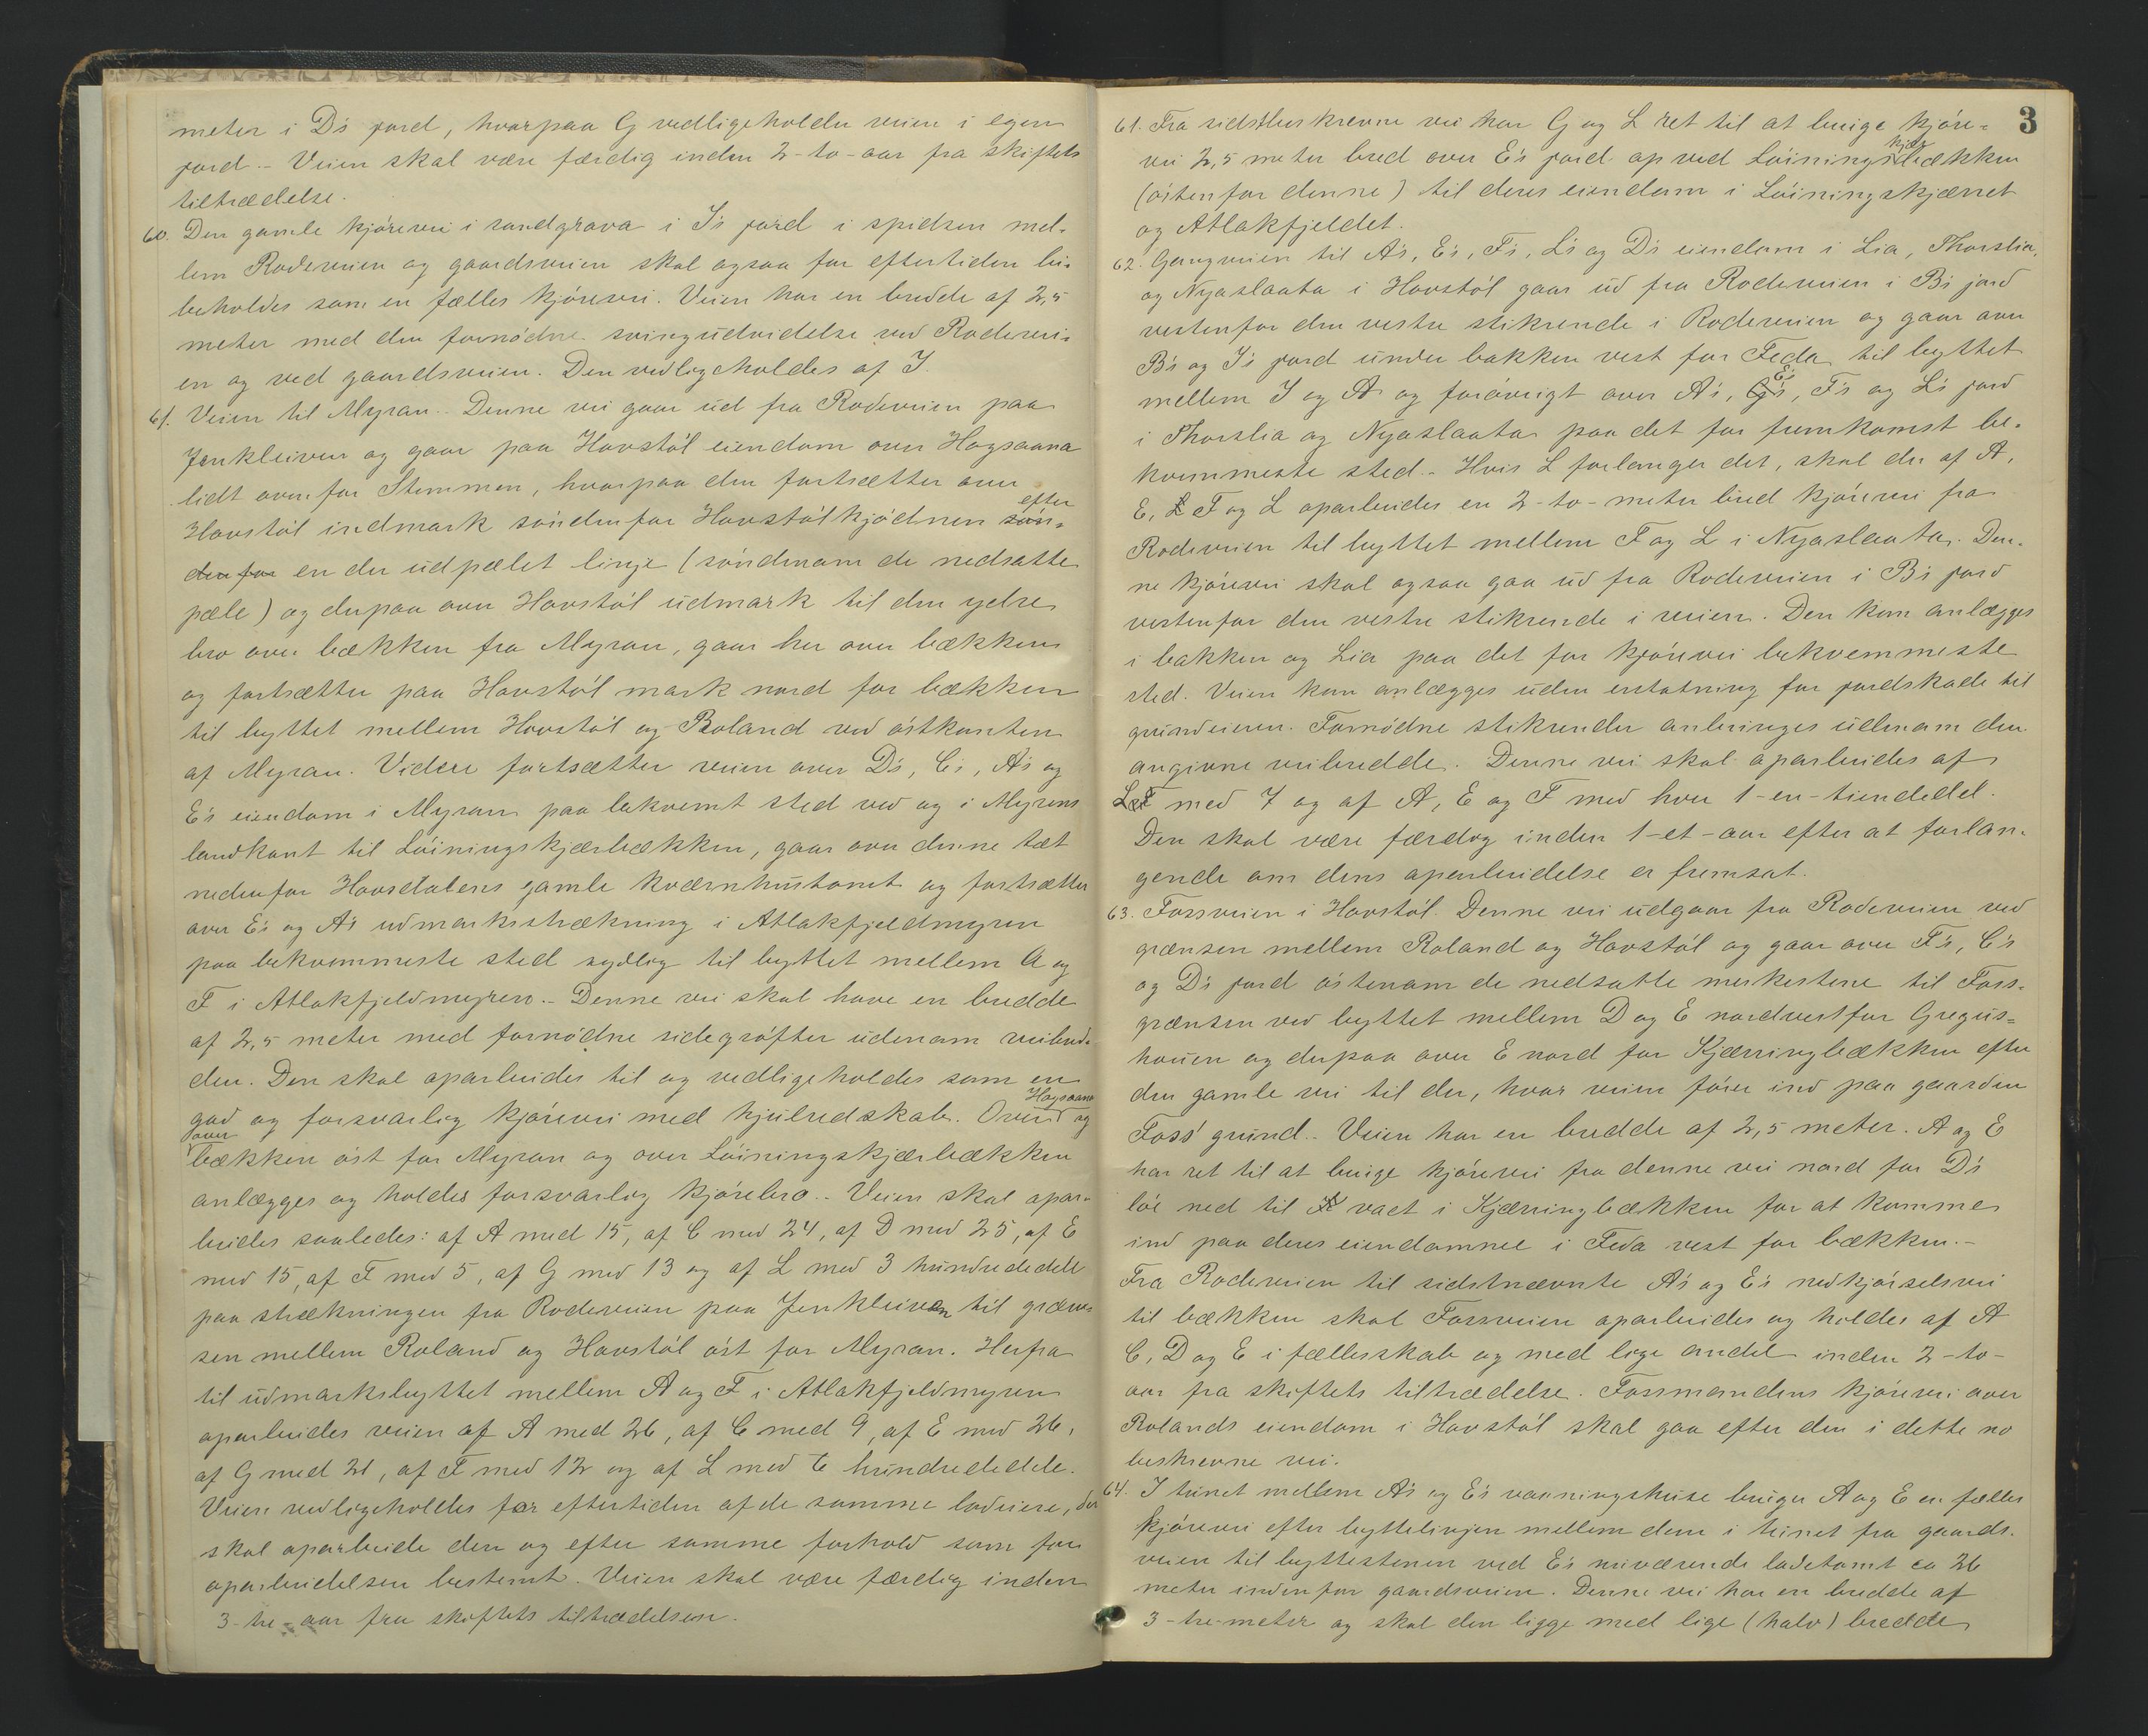 meter i D's jord, hvorpaa G vedligeholder veien i egen
jord. - Veien skal være færdig inden 2-to-aar fra skiftets
tiltrædelse.
60. Den gamle kjørevei i sandgrava i I's jord i spidsen mel-
lem Rodeveien og gaardsveien skal ogsaa for eftertiden bi-
beholdes som en fælles kjørevei. Veien har en bredde af 2,5
meter med den fornødne svingudvidelse ved Rodevei-
en og ved gaardsveien. Den vedligeholdes af I.
61. Veien til Myran. - Denne vei gaar ud fra Rodeveien paa
Jenkleiven og gaar paa Hovstøl eiendom over Hagsaana
lidt ovenfor Stemmen, hvorpaa den fortsætter over
Hovstøl indmark søndenfor Hovstølkjødnen efter søn-
denfor en der udpælet linje (søndenom de nedsatte
pæle) og derpaa over Hovstøl udmark til den ydre
bro over bækken fra Myran, gaar her over bækken
og fortsætter paa Hovstøl mark nord for bækken
til byttet mellem Hovstøl og Roland ved østkanten
af Myran. Videre fortsætter veien over D's, C's, A's og
E's eiendom i Myran paa bekvemt sted ved og i Myrens
landkant til Løiningskjærbækken, gaar over denne tæt
nedenfor Hovstølens gamle kværnhustomt og fortsætter
over E's og A's udmarksstrækning i Atlakfjeldmyren
paa bekvemmeste sted sydlig til byttet mellem A og
F i Atlakfjeldmyren. - Denne vei skal have en bredde
af 2,5 meter med fornødne sidegrøfter udenom veibred-
den. Den skal oparbeides til og vedligeholdes som en
god og forsvarlig kjørevei med hjulredskab. Over Hagsaana og
over bækken øst for Myran og over Løiningskjærbækken
anlægges og holdes forsvarlig kjørebro. - Veien skal opar-
beides saaledes: af A med 15, af C med 24, af D med 25, af E
med 15, af F med 5, af G med 13 og af L med 3 hundrededele
paa strækningen fra Rodeveien paa Jenkleiven til græn-
sen mellem Roland og Hovstøl øst for Myran. Herfra
til udmarksbyttet mellem A og F i Atlakfjeldmyren
oparbeides veien af A med 26, af C med 9, af E med 26,
af G med 21, af F med 12 og af L med 6 hundrededele.
Veien vedligeholdes for eftertiden af de samme lodeiere, der
skal oparbeide den og efter samme forhold som for
oparbeidelsen bestemt. Veien skal være færdig inden
3-tre-aar fra skiftets tiltrædelsen.
3
61. Fra sidstbeskrevne vei har G og L ret til at bruge kjøre-
vei 2,5 meter bred over E's jord op ved Løiningskjærbækken
(østenfor denne) til deres eiendom i Løiningskjærret
og Atlakfjeldet.
62. Gangveien til A's, E's, F's, L's og D's eiendom i Lia, Thorslia,
og Nyaslaata i Hovstøl gaar ud fra Rodeveien i B's jord
vestenfor den vestre stikrende i Rodeveien og gaar over
B's og I's jord under bakken vest for Feda til byttet
mellem I og A og forøvrigt over A's, G's E's, F's og L's jord
i Thorslia og Nyaslaata paa det for fremkomst be-
kvemmeste sted. - Hvis L forlanger det, skal der af A,
E, L F og L oparbeides en 2-to-meter bred kjørevei fra
Rodeveien til byttet mellem F og L i Nyaslaata. Den-
ne kjørevei skal ogsaa gaa ud fra Rodeveien i B's jord
vestenfor den vestre stikrende i veien. Den kan anlægges
i bakken og Lia paa det for kjørevei bekvemmeste
sted. Veien kan anlægges uden erstatning for jordskade til
grundeieren. Fornødne stikrender anbringes udenom den
angivne veibredde. Denne vei skal oparbeides af
L med 7 og af A, E og F med hver 1-en-tiendedel.
Den skal være færdig inden 1-et-aar efter at forlan-
gende om dens oparbeidelse er fremsat.
63. Fossveien i Hovstøl. Denne vei udgaar fra Rodeveien ved
grænsen mellem Roland og Hovstøl og gaar over F's, C's
og D's jord østenom de nedsatte merkestene til Foss-
grænsen ved byttet mellem D og E nordvestfor Gregus-
houen og derpaa over E nord for Kjærringbækken efter
den gamle vei til der, hvor veien fører ind paa gaarden
Foss' grund. - Veien har en bredde af 2,5 meter. A og E
har ret til at bruge kjørevei fra denne vei nord for D's
løe ned til vaet i Kjærringbækken for at komme
ind paa deres eiendomme i Feda vest for bækken. -
Fra Rodeveien til sidstnævnte A's og E's nedkjørselsvei
til bækken skal Fossveien oparbeides og holdes af A
C, D og E i fællesskab og med lige andel inden 2-to-
aar fra skiftets tiltrædelse. Fossmandens kjørevei over
Rolands eiendom i Hovstøl skal gaa efter den i dette no
beskrevne vei.
64. I tunet mellem A's og E's vaaningshuse bruger A og E en fælles
kjørevei efter byttelinjen mellem dem i tunet fra gaards-
veien til byttestenen ved E's nuværende ladetomt ca 26
meter indenfor gaardsveien. Denne vei har en bredde af
3-tre-meter og skal den ligge med lige (halv) bredde